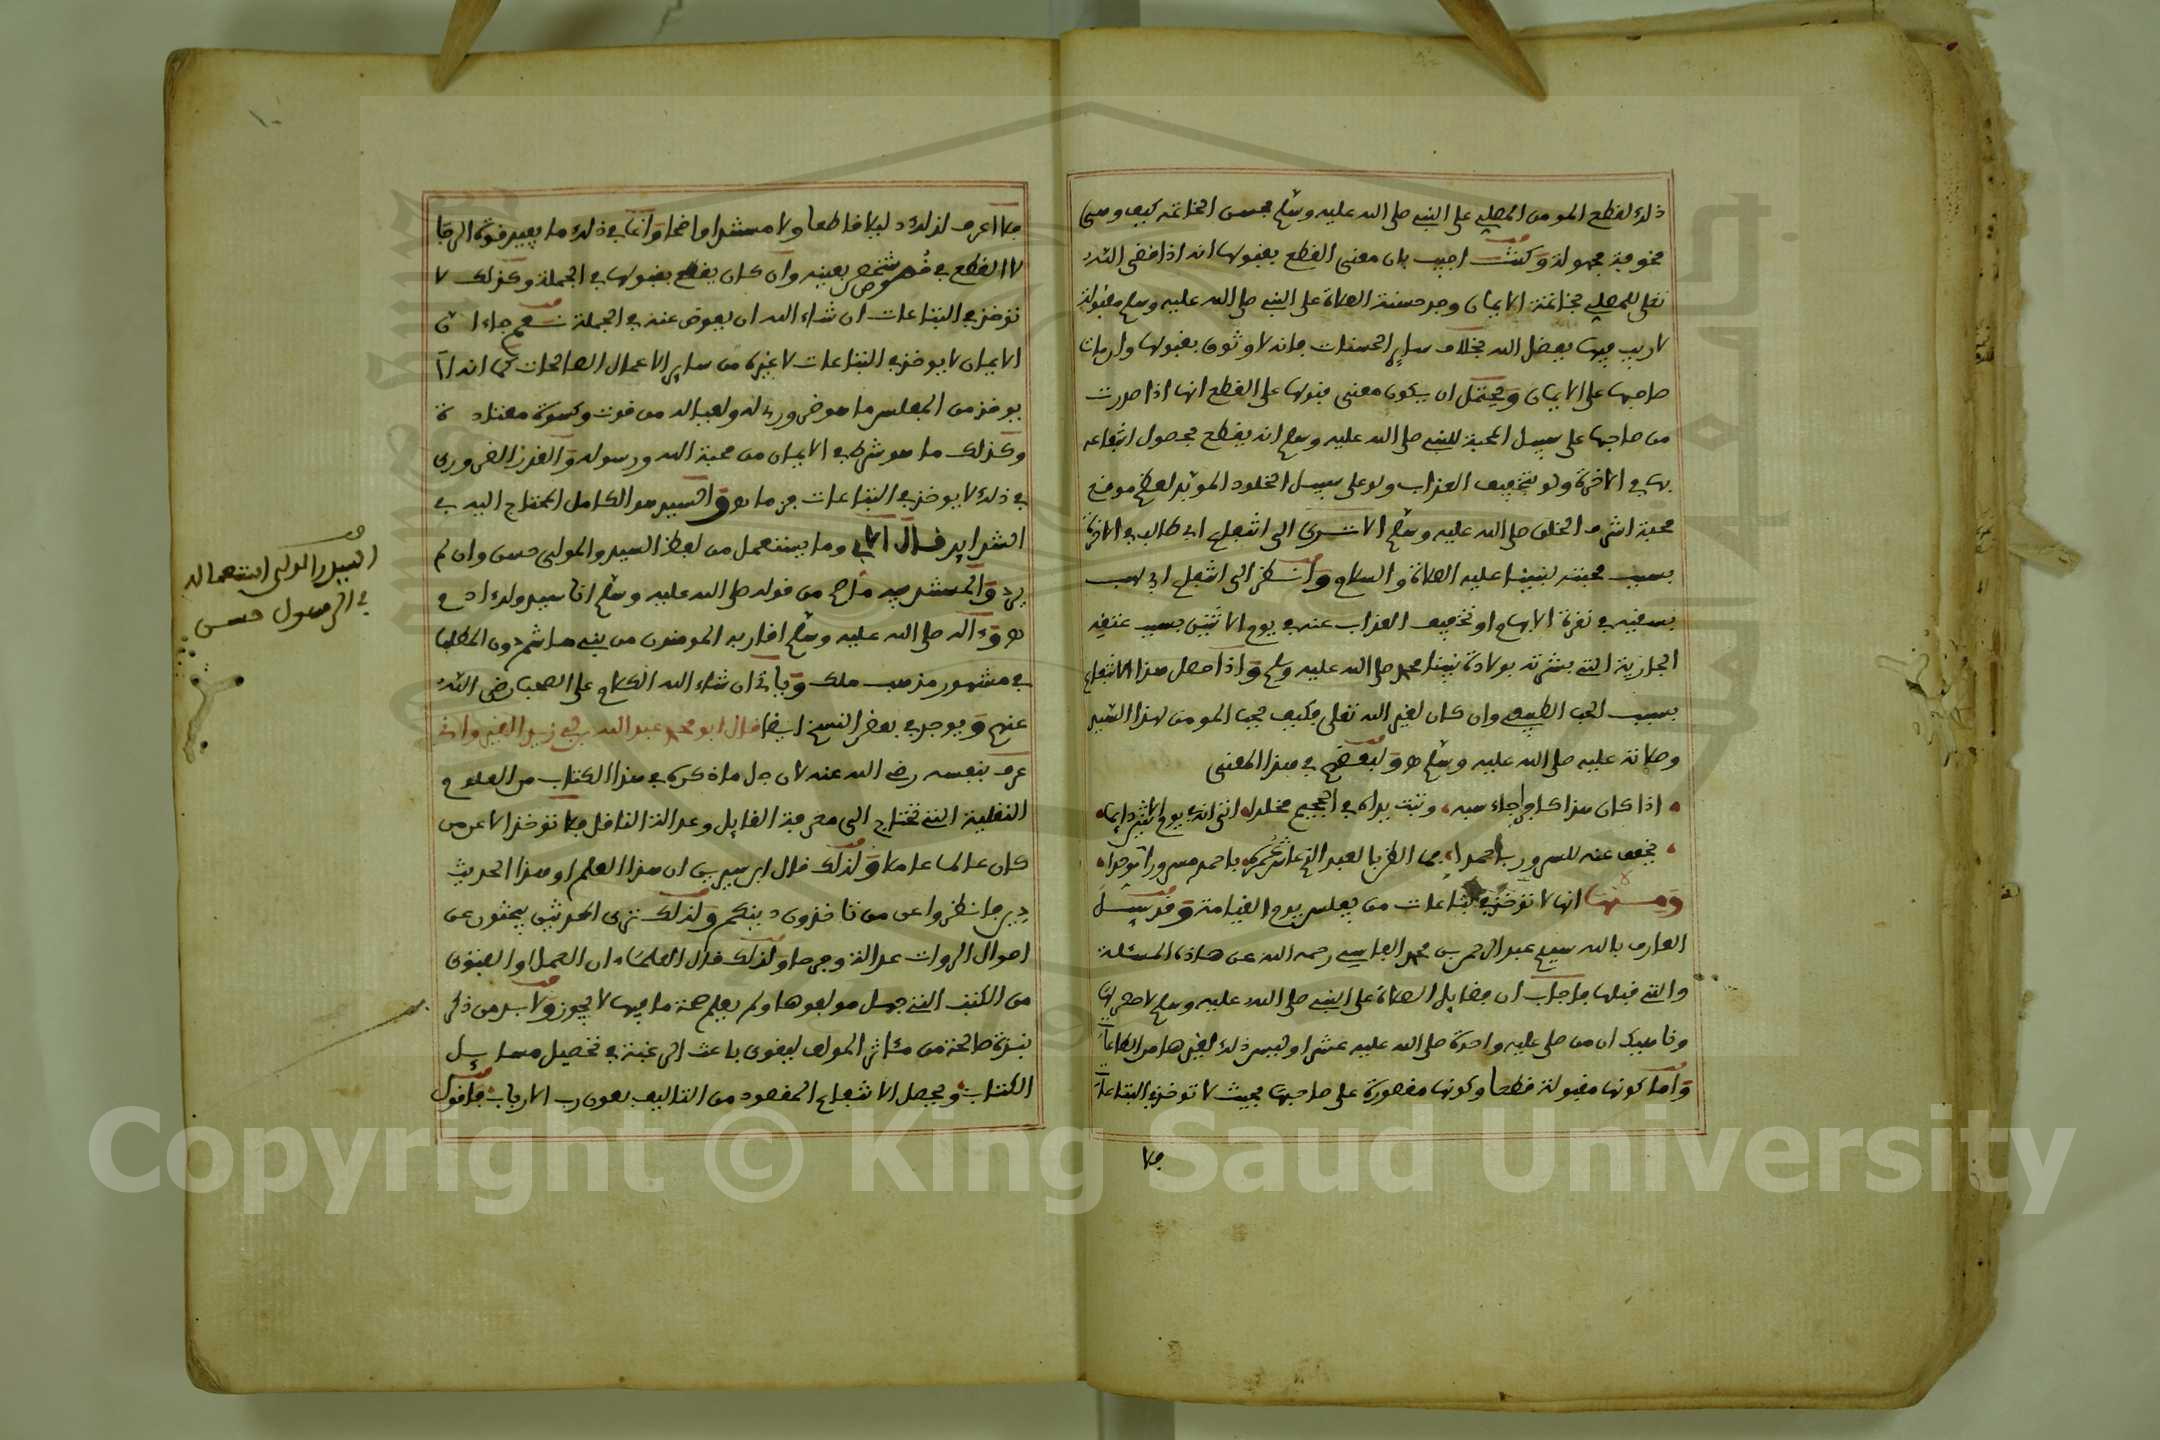 ذلك لقطع المومن المصلي على النبي صلى الله عليه وسلم بحسن الخاتمة كيف وهي
مخوفة مجهولة وكنت اجيب بان معنى القطع بقبولها انه اذا قضى الله
تعلى للمصلي بخاتمة الايمان وجد حسنة الصلاة على النبي صلى الله عليه وسلم مقبولة
لا ريب فيها بفضل الله بخلاف ساير الحسنات فانه لا وثوق بقبولها وان مات
صاحبها على الايمان ويحتمل ان يكون معنى قبولها على القطع انها اذا صدرت
من صاحبها على سبيل المحبة للنبي صلى الله عليه وسلم انه يقطع بحصول انتفاعه
بها في الاخرة ولو بتخفيف العذاب ولو على سبيل الخلود الموبد لعظم موقع
محبة اشرف الخلق صلى الله عليه وسلم الا ترى الى انتفاع ابي طالب في الاخرة
بسبب محبته لنبينا عليه الصلاة والسلام وانظر الى انتفاع ابي لهب
بسقيه في نقرة الابهام او تخفيف العذاب عنه في يوم الاثنين بسبب عتقه
الجارية التي بشرته بولادة نبينا محمد صلى الله عليه وسلم واذا حصل هذا الانتفاع
بسبب الحب الطبيعي وان كان لغير الله تعلى فكيف بحب المومن لهذا السيد
وصلاته عليه صلى الله عليه وسلم ه ولبعضهم في هذا المعنى
اذا كان هذا كافرا جاء ذمه وتبت يداه في الجحيم مخلدا اتى انه في يوم الاثنين دايما
يخفف عنه للسرور باحمدا فما الظن بالعبد الذي عاش عمره باحمد مسرورا موحدا
ومنها انها لا توخذ في التباعات من يفلس يوم القيامة وقد سيل
العارف بالله سيدي عبد الرحمن بن محمد الفاسي رحمه الله عن هاذه المسئلة
والتي قبلها فاجاب ان فضايل الصلاة على النبي صلى الله عليه وسلم لا حصر لها
وناهيك ان من صلى عليه واحدة صلى الله عليه عشرا وليس ذلك لغيرها من الطاعات
واما كونها مقبولة قطعا وكونها مقصورة على صاحبها بحيث لا توخذ في التباعات
فلا
فلا اعرف لذلك دليلا قاطعا ولا مستندا واضحا وانما في ذلك ما يفيد قوة الرجا
لا القطع في خصوص شخص بعينه وان كان يقطع بقبولها في الجملة وكذلك لا
توخذ في التباعات ان شاء الله ان يعوض عنه في الجملة نعم جاء ان
الايمان لا يوخذ في التباعات لا غيره من ساير الاعمال الصالحات كما انه لا
يوخذ من المفلس ما هو ضروري له ولعياله من قوت وكسوة معتادة
وكذلك ما هو شرط في الايمان من محبة الله ورسوله والقدر الضروري
في ذلك لا يوخذ في التباعات جزما ه والسيد هو الكامل المحتاج اليه في
الشدايد قال الابي وما يستعمل من لفظ السيد والمولى حسن وان لم
يرد والمستند فيه ما صح من قوله صلى الله عليه وسلم انا سيد ولد ادم
ه وءاله صلى الله عليه وسلم اقاربه المومنون من بني هاشم دون المطلب
في مشهور مذهب ملك وياتي ان شاء الله الكلام على الصحب رضي الله
عنهم ويوجد في بعض النسخ ايضا قال ابو محمد عبد الله بن ابي زيد القيرواني
عرف بنفسه رضي الله عنه لان جل ما ذكره في هذا الكتاب من العلوم
النقلية التي تحتاج الى معرفة القايل وعدالة الناقل فلا توخذ الا عن من
كان عالما عاملا ولذلك قال ابن سيرين ان هذا العلم او هذا الحديث
دين فانظروا عن من تاخذون دينكم ولذلك ترى المحدثين يبحثون عن
احوال الروات عدالة وجرحا ولذلك قال العلماء ان العمل او الفتوى
من الكتب التي جهل مولفوها ولم يعلم صحة ما فيها لا يجوز ولا بد من ذكر
نبذة صالحة من مئاثر المولف ليقوى باعث الرغبة في تحصيل مسايل
الكتاب ويحصل الانتفاع المقصود من التاليف بعون رب الارباب فاقول
السيد والمولى استعماله
في الرسول حسن